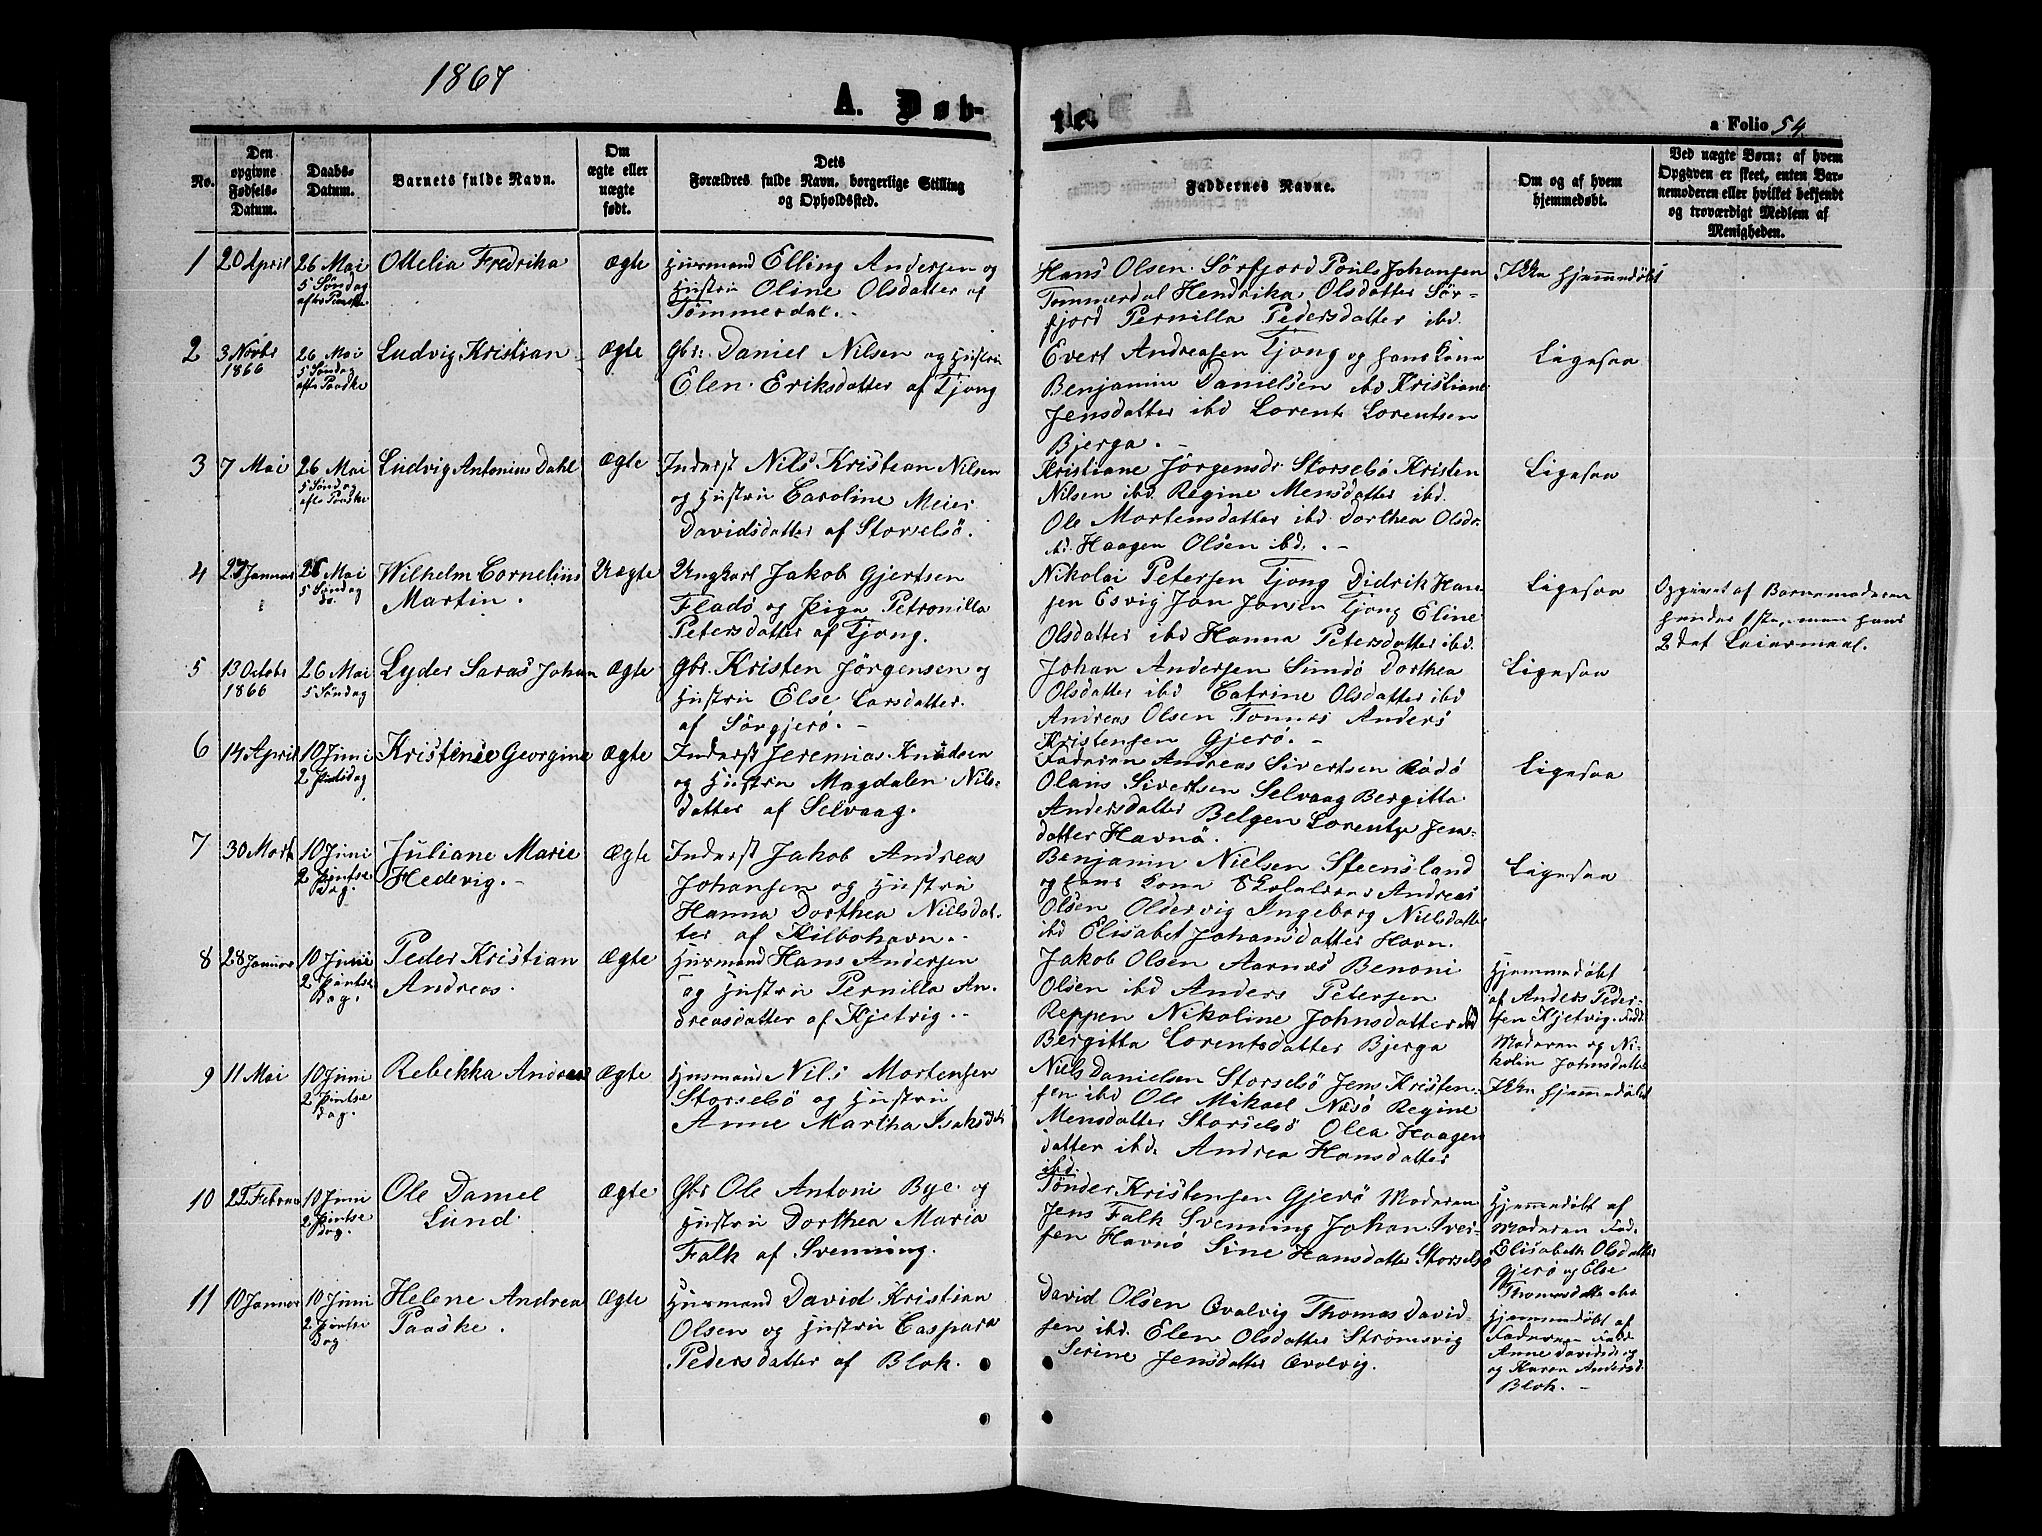 1867
A. Døb-
te.
a Folio 54.
No.
Den
opgivne
Fødsels-
Datum.
Daabs-
Datum.
Barnets fulde Navn.
Om
ægte eller
uægte
født.
Dets
Forældres fulde Navn, borgerlige Stilling
og Opholdssted.
Faddernes Navne.
Om og af hvem
hjemmedøbt.
Ved uægte Børn: af hvem
Opgaven er skeet, enten Bar-
nemoderen eller hvilket bekjendt
og troværdigt Medlem af
Menigheden.
1
20 April
26 Mai
5 Søndag
efter Paaske
Ottelia Fredrika
ægte
Husmand Elling Andersen og
Hustru Oline Olsdatter af
Tømmerdal. -
Hans Olsen Sörfjord Pouls Johansen
Tommerdal Hendrika Olsdatter Sör-
fjord Pernilla Pedersdatter ibd.
Ikke hjemmedøbt
2
3 Novbr
1866
26 Mai
5 Søndag
eftr Paaske
Ludvig Kristian
ægte
Gbr: Daniel Nilsen og Hustru
Elen Eriksdatter af Tjong
Evert Andreasen Tjong og hans Kone
Benjamin Danielsen ibd Kristiane
Jensdatter ibd Lorents Lorentsen
Bjerga. -
Ligesaa
3
7 Mai
26 Mai
5 Søndag
eftr Paaske
Ludvig Antonius Dahl
ægte
Inderst Nils Kristian Nilsen
og Hustru Caroline Meier
Davidsdatter af Storselsö.
Kristiane Jörgensdr. Storselsö Kristen
Nilsen ibd. Regine Mensdatter ibd.
Ole Mortensdatter ibd. Dorthea Olsdr.
ibd. Haagen Olsen ibd. -
Ligesaa
4
23 Januar
26 Mai
5 Søndag
do.
Wilhelm Cornelius
Martin.
Uægte
Ungkarl Jakob Gjertsen
Fladö og Pige Petronilla
Petersdatter af Tjong.
Nikolai Petersen Tjong Didrik Han-
sen Esvig Jon Jonsen Tjong Eline
Olsdatter ibd Hanna Petersdatter ibd.
Ligesaa
Opgivet af Barnemoderen
hendes 1ste, men hans
2det Leiermaal.
5
13 Octobr
1866
26 Mai
5 Søndag
Lyder Saras Johan
ægte
Gbr. Kristen Jörgensen og
Hustru Else Larsdatter
af Sörgjerö. -
Johan Andersen Sundö Dorthea
Olsdatter ibd Catrine Olsdatter ibd
Andreas Olsen Tonnes Anders
Kristensen Gjerö. -
Ligesaa
6
14 April
10 Juni
2 Pintsdag
Kristense Georgine
ægte
Inderst Jeremias Knudsen
og Hustru Magdalen Nils-
datter af Selvaag.
Faderen Andreas Sivertsen Rödö
Olaus Sivertsen Selvaag Bergitta
Andersdatter Belgen Lorentze Jens-
datter Havnö.
Ligesaa
7
30 Marts
10 Juni
2 Pintse
Dag.
Juliane Marie
Hedevig. -
ægte
Inderst Jakob Andrea
Johansen og Hustru
Hanna Dorthea Nielsdat-
ter af Kilbohavn. -
Benjamin Nielsen Steensland
og hans Kone Skolelærer Andreas
Olsen Oldervig Ingeborg Nielsdatter
ibd Elisabet Johansdatter Havn.
Ligesaa
8
28 Januar
10 Juni
2 Pintse
Dag.
Peder Kristian
Andreas.
ægte
Husmand Hans Andersen
og Hustru Pernilla An-
dreasdatter af Kjetvig. -
Jakob Olsen Aarnæs Benoni
Olsen ibd Anders Petersen
Reppen Nikoline Johnsdatter ibd
Bergitta Lorentsdatter Bjerga
Hjemmedöbt
af Anders Peder-
sen Kjetvig. Fadd.
Moderen og Ni-
kolin Johnsdatter
9
11 Mai
10 Juni
2 Pintse
dag.
Rebekka Andrea
ægte
Husmand Nils Mortensen
Storselsö og Hustru
Anne Martha Isaksdtr
Niels Danielsen Storselsö Jens Kristen-
sen ibd Ole Mikael Næsö Regine
Mensdatter Storselsö Olea Haagen-
datter ibd. Andrea Hansdatter
ibd.
Ikke hjemmedöbt
10
Februar
10 Juni
2 Pintse
Dag.
Ole Daniel
Lund.
ægte
Gbr Ole Antoni Bye og
Hustru Dorthea Maria
Falk af Svenning.
Tönder Kristensen Gjerö Moderen
Jens Falk Svenning Johan Iver-
sen Havnö Sine Hansdatter Storselsö
Hjemmedöbt af
Moderen Fad.
Elisabeth Olsdatter
Gjerö og Else
Thomasdatter ibd
11
10 Januar
10 Juni
2 Pintse
Dag
Helene Andrea
Paaske.
ægte
Husmand David Kristian
Olsen og Hustru Caspara
Pedersdatter af Blok.
David Olsen Qvalvig Thomas David-
sen ibd. Elen Olsdatter Strömsvig
Serine Jensdatter Qvalvig.
Hjemmedöbt af
Faderen Fadd.
Anne Davidsd. og
og Karen Andersd.
Blok. -